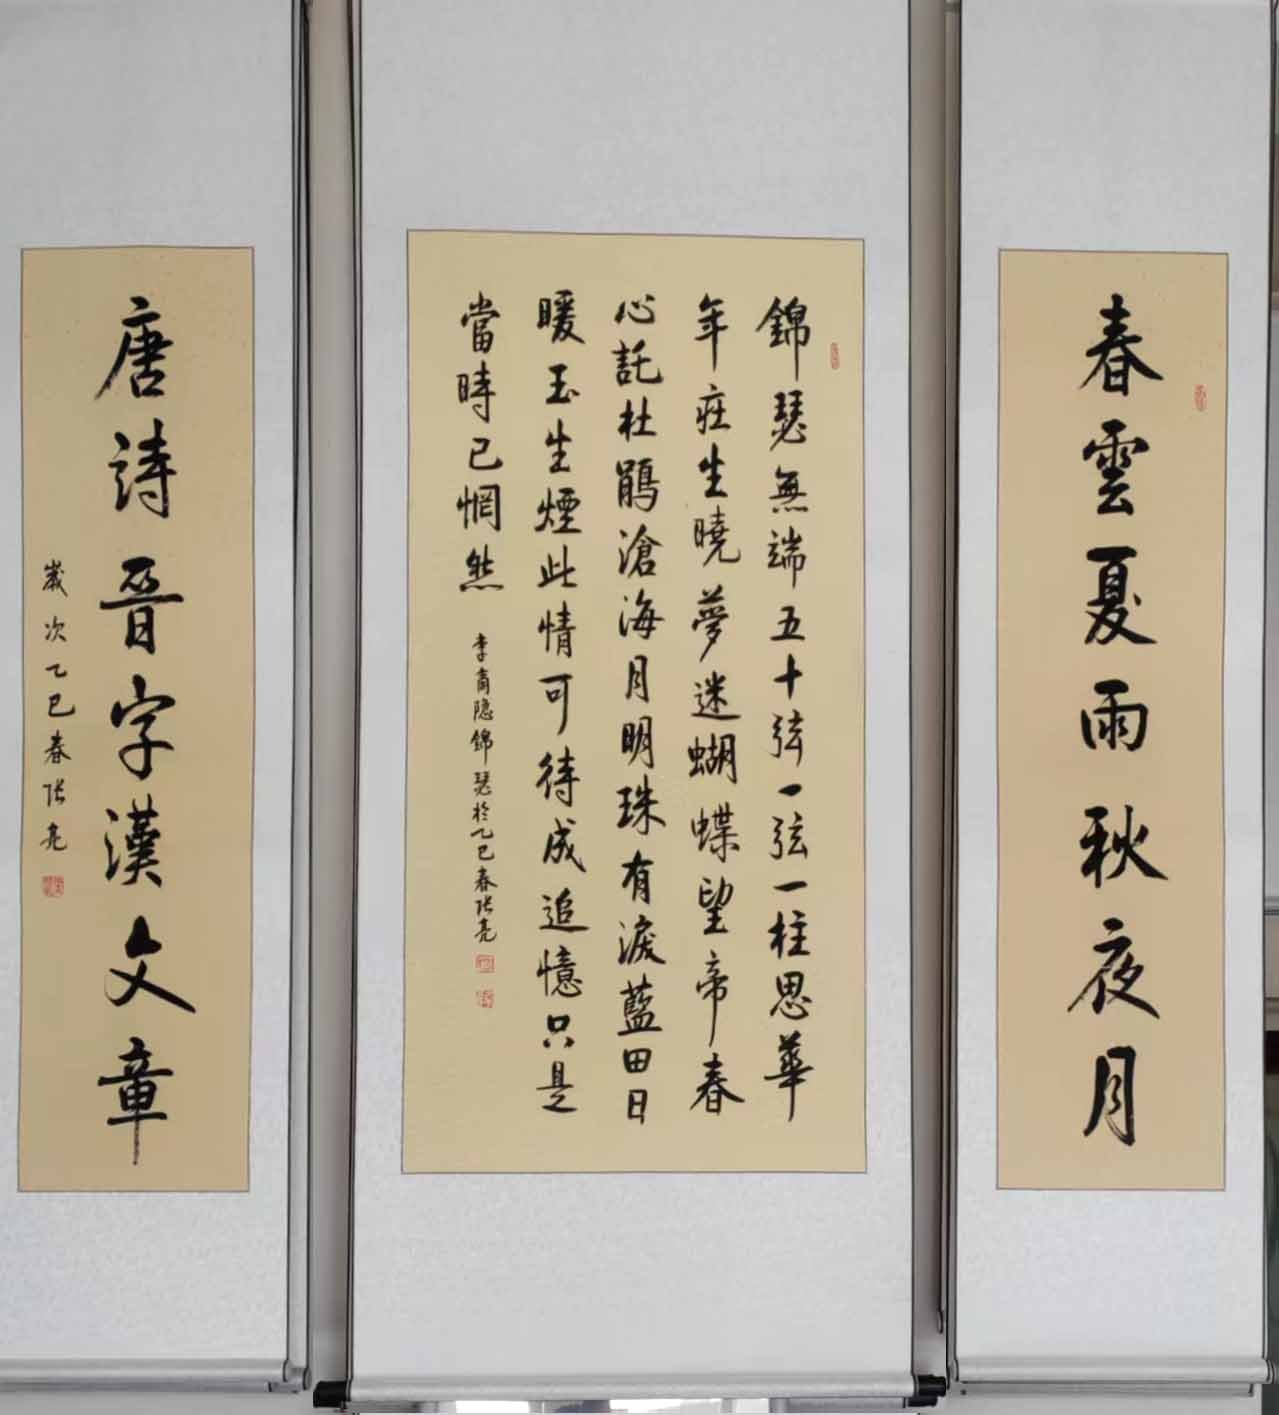 春雲夏雨秋夜月
錦瑟無端五十弦一弦一柱思華
年莊生曉夢迷蝴蝶望帝春
心託杜鵑滄海月明珠有淚藍田日
暖玉生煙此情可待成追憶只是
當時已惘然
李商隐錦瑟於乙巳春张亮
唐詩晉字漢文章
嵗次乙巳春张亮